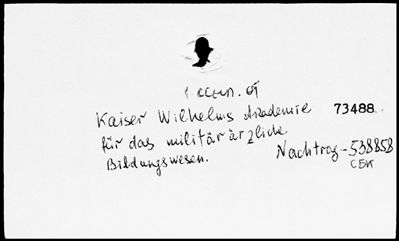 Kaiser Wilhelms Akademie 73488
für das militärärzliche
Bildungswesen. Nachtrag-538858
CBK